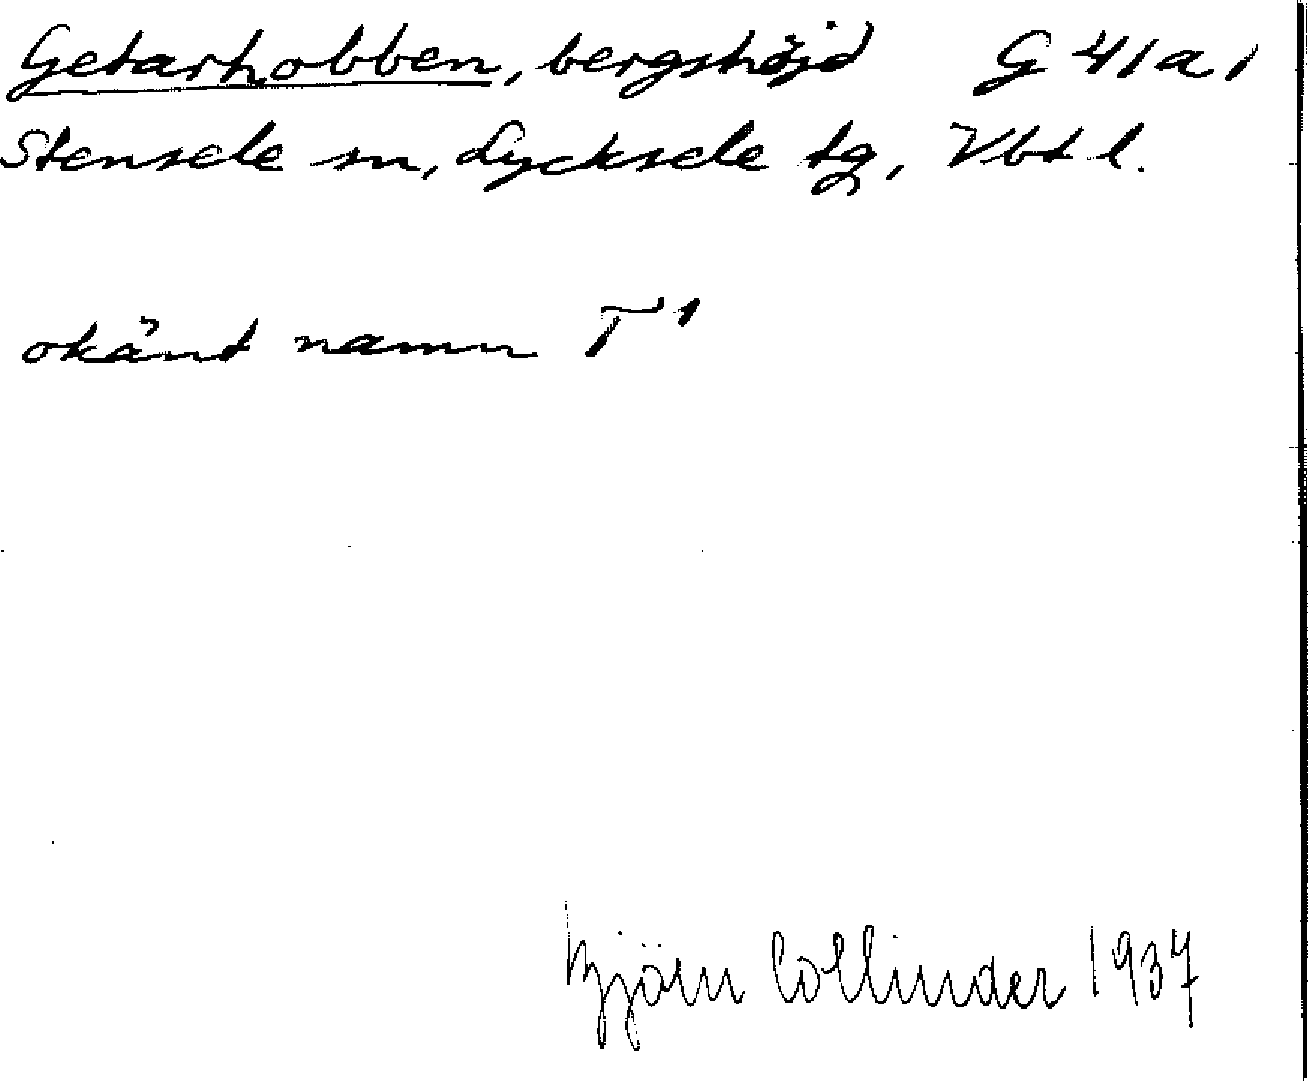 Getarhobben, bergshöjd G 41 a 1
Stensele sn, Lycksele tg, Vbt l.
okänt namn T 1
Björn Collinder 1937